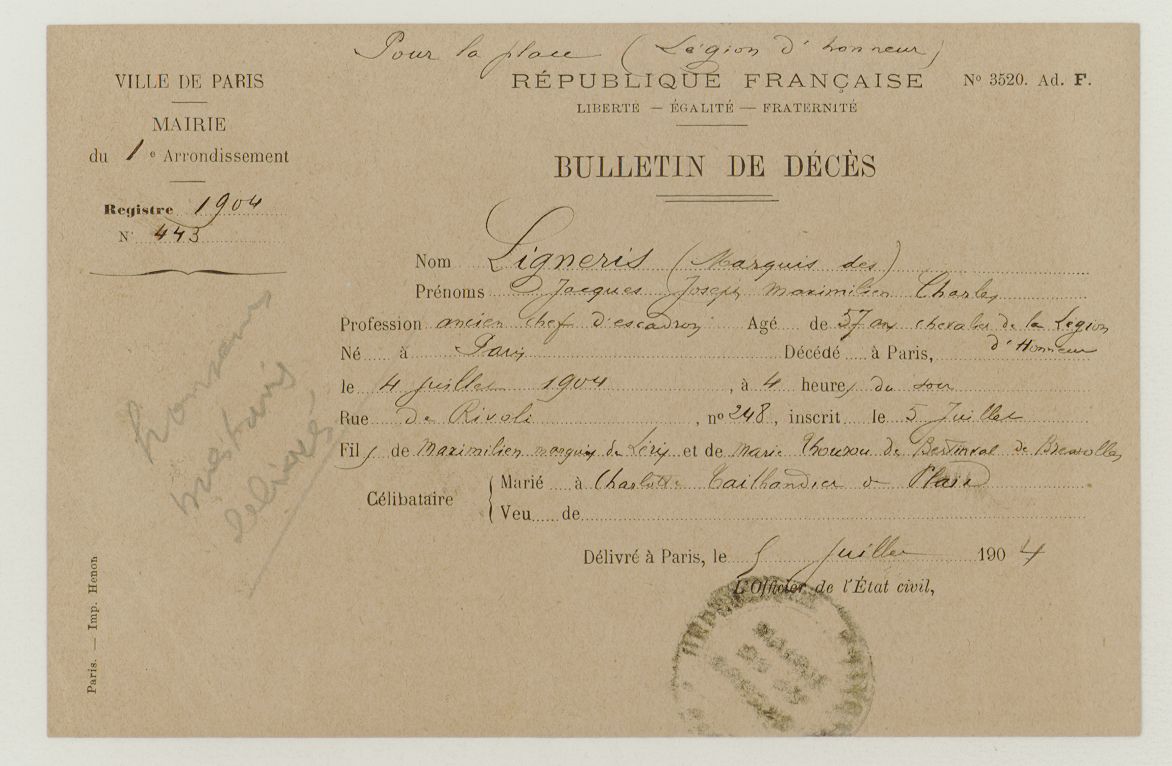 Pour la place (Légion d'honneur)
VILLE DE PARIS
MAIRIE
du 1e Arrondissement
Registre 1904
N° 443
RÉPUBLIQUE FRANÇAISE
LIBERTÉ — ÉGALITÉ — FRATERNITÉ
N° 3520. Ad. F.
BULLETIN DE DÉCÈS
Nom Ligneris (Marquis des)
Prénoms Jacques Joseph Maximilien Charles
Profession ancien chef d'escadron Agé de 57 ans chevalier de la Légion
d'Honneur
Né à Paris Décédé à Paris,
le 4 Juillet 1904, à 4 heures du soir
Rue de Rivoli, n° 248, inscrit le 5 Juillet
Fils de Maximilien marquis de et de Marie de de
Célibataire
Marié à Charlotte
Veu de
Délivré à Paris, le 5 Juillet 1904
L'Officier de l'État civil,
honneurs
militaires
Paris. — Imp. Henon